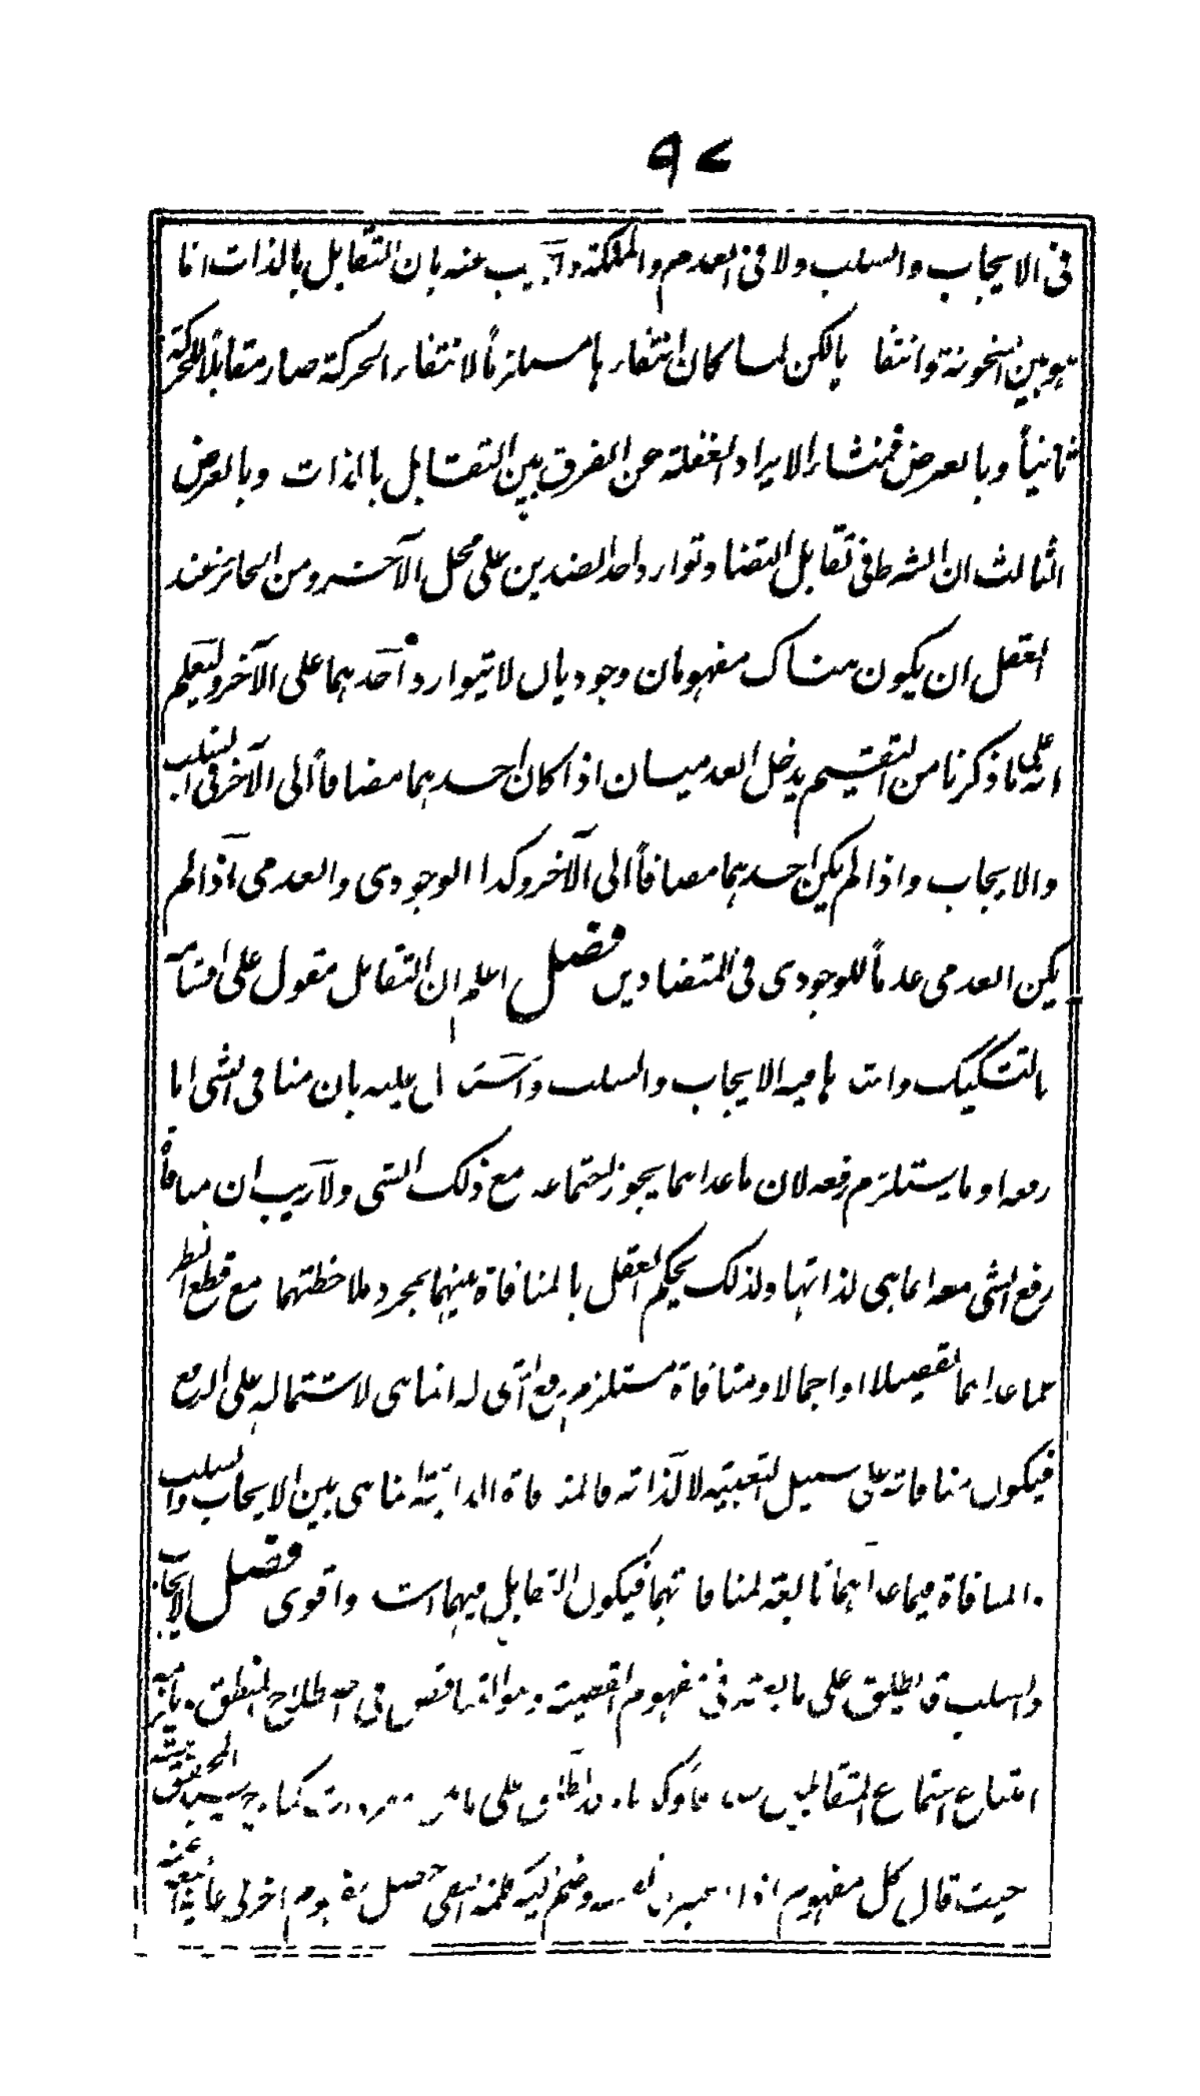 ٩٧
فى الايجاب والسلب ولا فى العدم والملكة واجيب عنه بان التقابل بالذات انما
هو بين السخونة وانتفائها لكن لما كان انتفاءها مستلزماً لانتفاء الحركة صار مقابلاً للحركة
ثانياً وبالعرض فمنشاء الايراد الغفلة عن الفرق بين التقابل بالذات وبالعرض
الثالث ان الشرط فى تقابل التضاد توارد احد الضدين على محل الآخر ومن الجائز عند
العقل ان يكون هناك مفهومان وجوديان لا يتوارد احدهما على الآخر وليعلم
انه على ما ذكرنا من التقسيم يدخل العدميان اذا كان احدهما مضافاً الى الآخر فى السلب
والايجاب واذا لم يكن احدهما مضافاً الى الآخر وكذا الوجودى والعدمى اذا لم
يكن العدمى عدماً للوجودى فى المتضادين فصل اعلم ان التقابل مقول على اقسامه
بالتشكيك واشدها فيه الايجاب والسلب واستدل عليه بان منافى الشى اما
رفعه او ما يستلزم رفعه لان ما عداهما يجوز اجتماعه مع ذلك الشى ولا ريب ان منافاة
رفع الشى معه انما هى لذاتها ولذلك يحكم العقل بالمنافاة بينهما بمجرد ملاحظتهما مع قطع النظر
عما عداهما تفصيلا او اجمالا ومنافاة مستلزم رفع الشى له انما هى لاشتماله على الرفع
فيكون منافاته على سبيل التبعية لا لذاته فالمنافاة الذاتية انما هى بين الايجاب والسلب
والمنافاة فيما عداهما تابعة لمنافاتهما فيكون التقابل فيهما اشد واقوى فصل الايجاب
والسلب قد يطلق على ما يعتبر فى مفهوم القضية وهو التناقض فى اصطلاح المنطق
امتناع اجتماع المتقابلين قد يطلق على كما المحقق
حيث قال كل مفهوم اذا اعتبر فى نفسه وضم اليه كلمة النفى حصل مفهوم آخر فى غاية البعد عنه